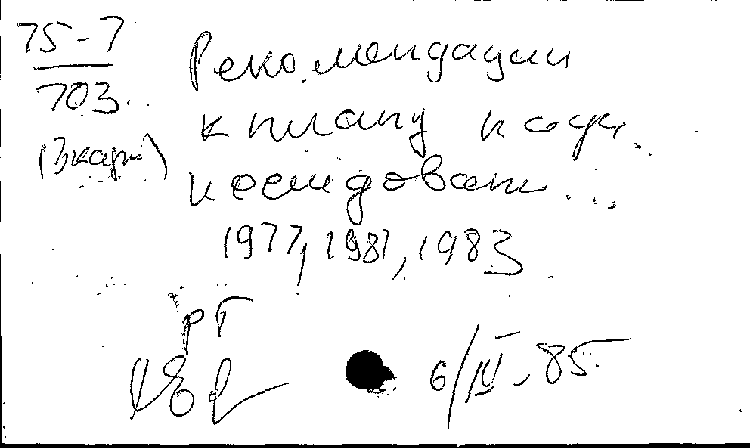 75-7
703
(3 карт)
Рекомендации
к плану и соц.
исследован...
1977, 1981, 1983
РТ
6/IV-85